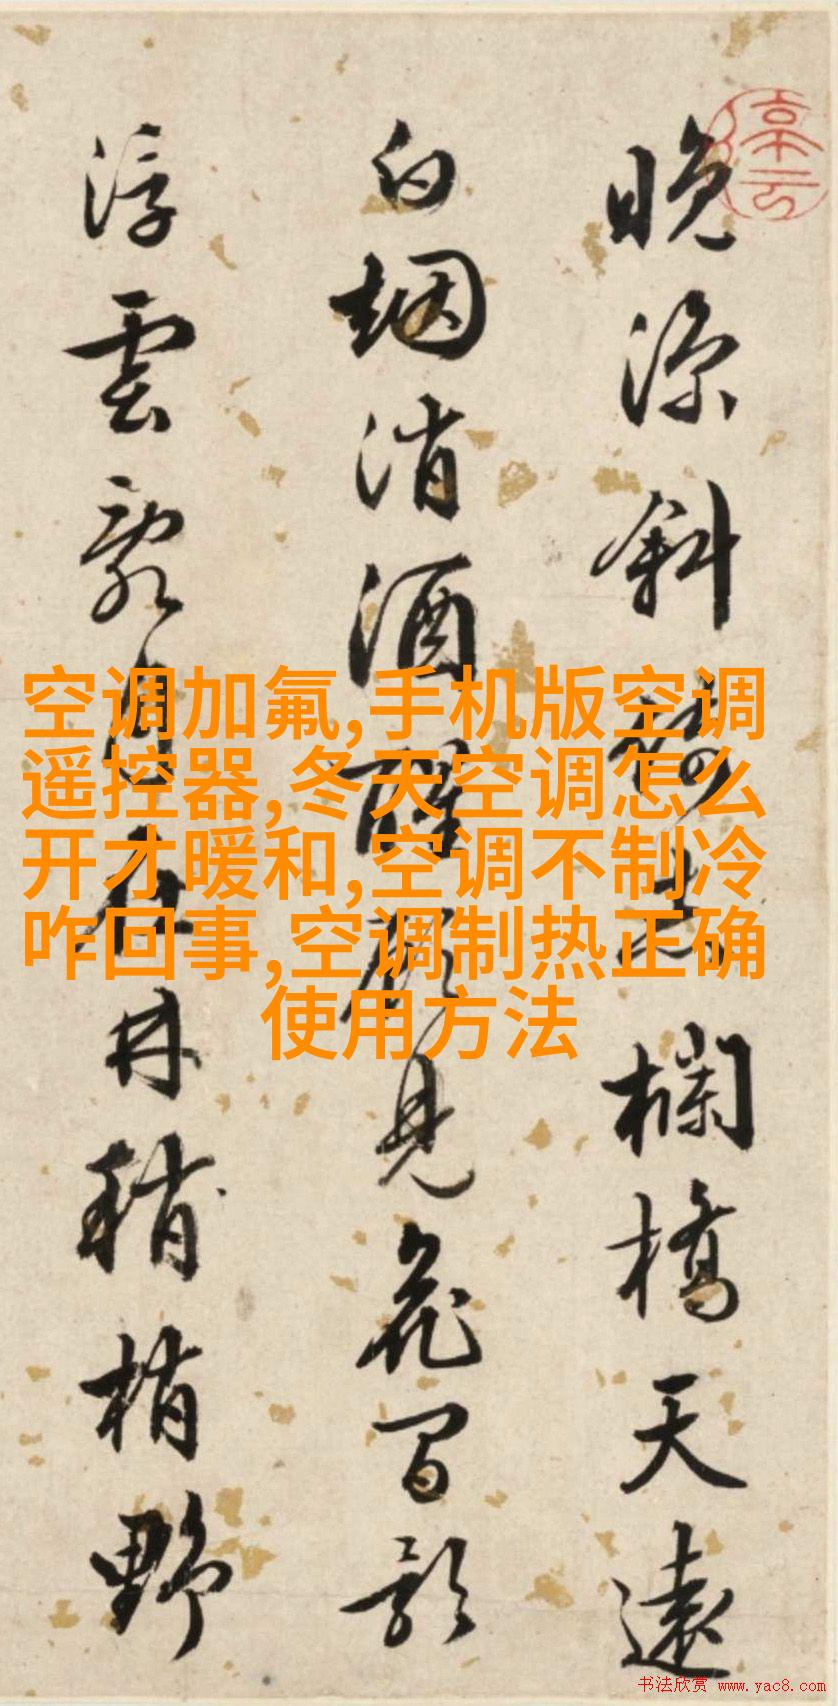 晚凉斜倚赤欄橋天遠
白烟消酒醒忽見花留影
浮雲家自在林稍梢野
空调加氟,手机版空调
遥控器,冬天空调怎么
开才暖和,空调不制冷
咋回事,空调制热正确
使用方法
书法欣赏 www.yac8.com